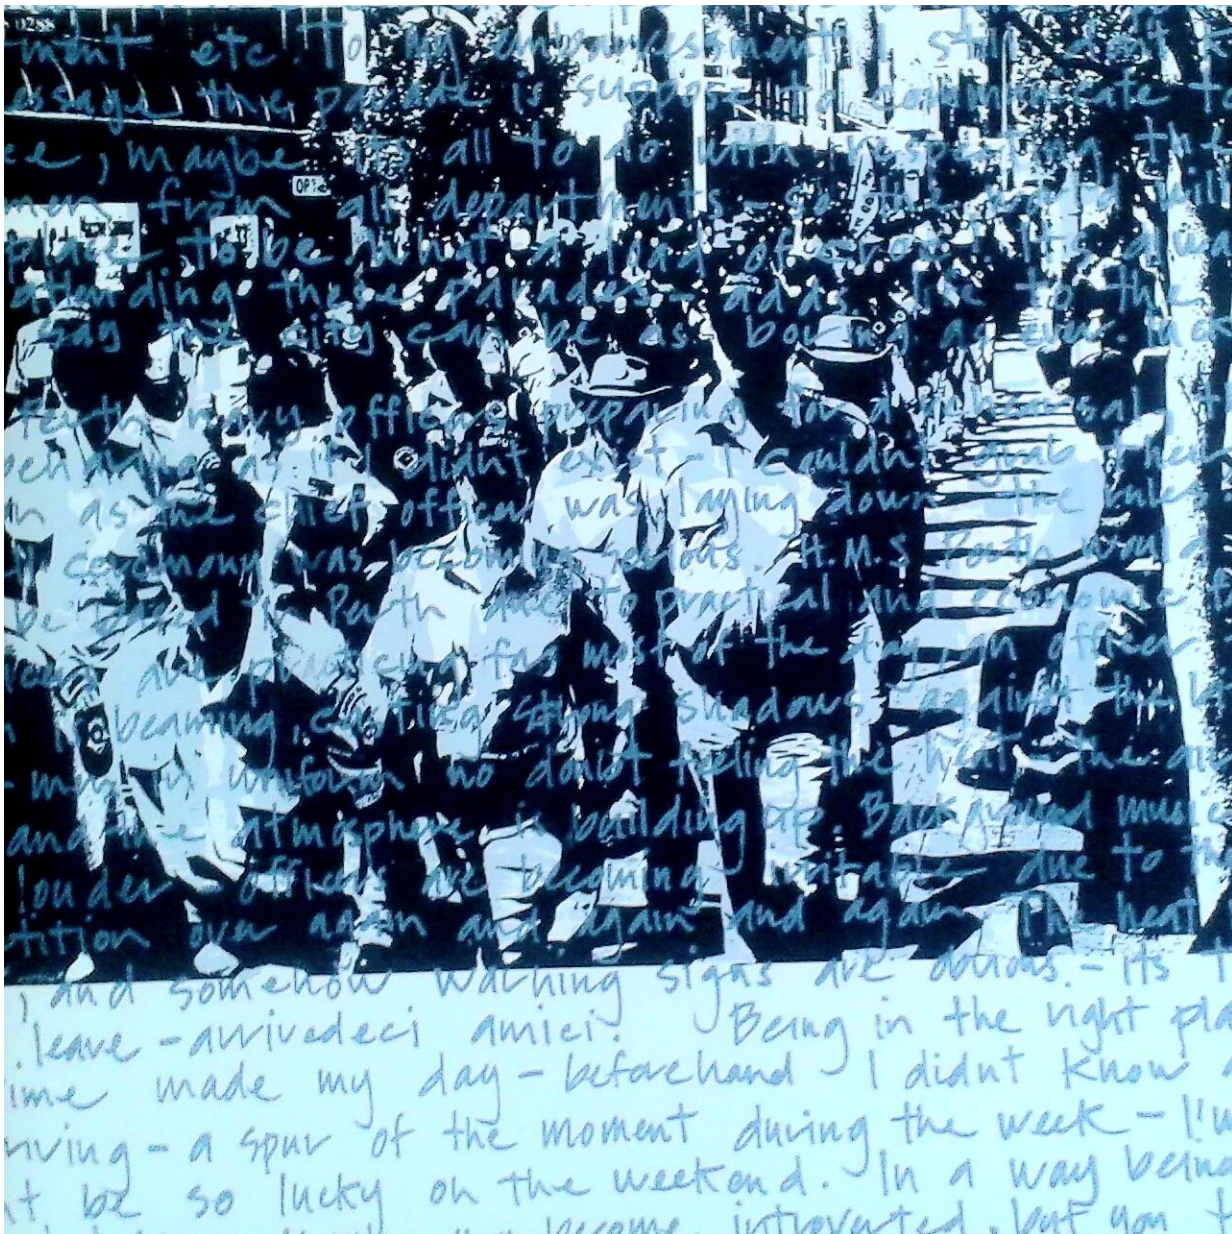 0288
etc. To my embarrassment I still dont
this parade is suppose to communicate
maybe its all to do with respecting
men from all departments - so the
place to be. What a load of rot. Its
attending these parades - adds life to the
say the city can be as boring as ever.
Perth navy officers preparing for a rehearsal
behaving as if I didnt exist - I couldnt grab their
as the chief officer was laying down the rules
ceremony was becoming serious. H.M.S Perth would
be based in Perth due to practical and economic
are practicing for most of the day, an officer
beaming, casting strong shadows against the
in uniform no doubt feeling the heat - the
and the atmosphere is building up. Background music
louder officers are becoming irritable due to the
over again and again and again. The heat
, and somehow warning signs are - its
leave - arrivedeci amici. Being in the right
made my day - beforehand I didnt know
- a spur of the moment during the week -
be so lucky on the weekend. In a way being
become introverted, but you